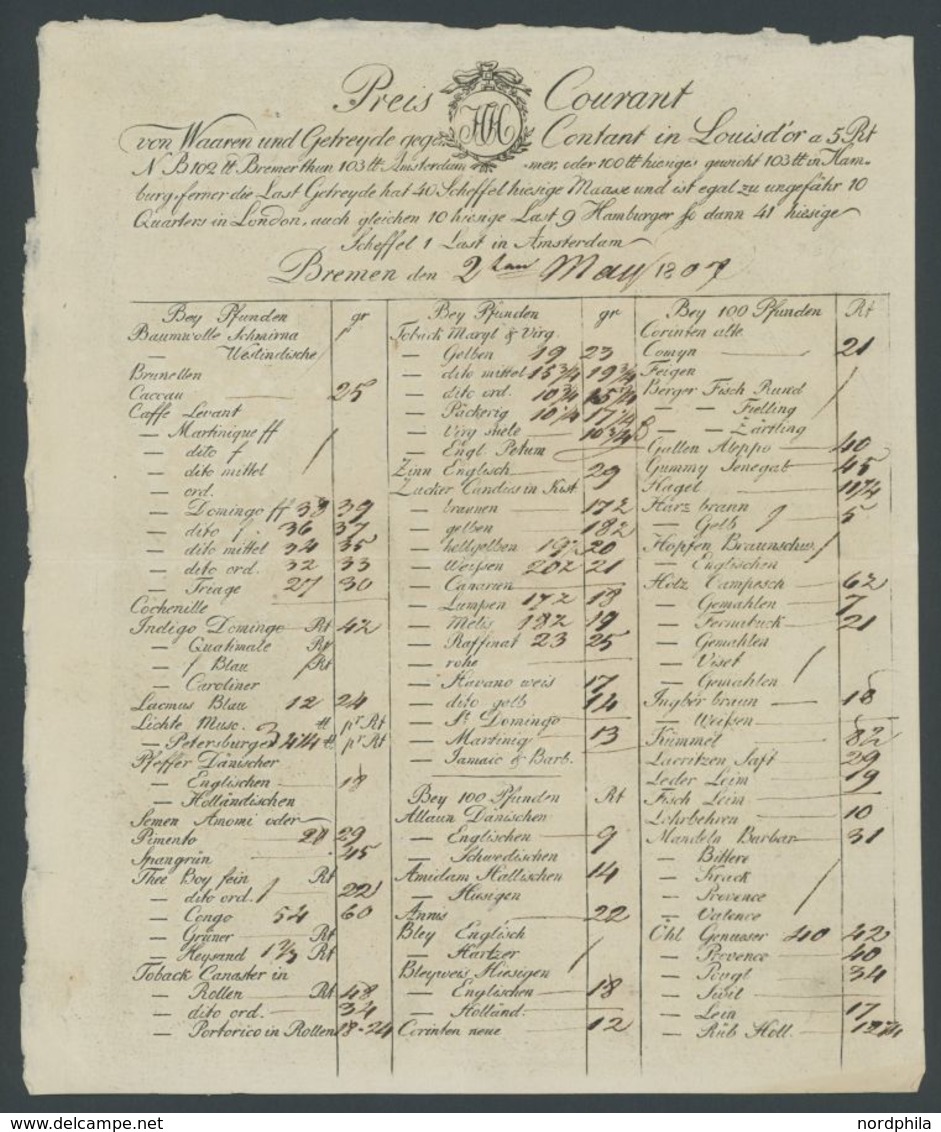 Preis Courant
HH
von Waaren und Getreyde gege. Contant in Louisd'or a 5 Rt
NB 102 tt Bremer thun 103 tt Amsterdam mer, oder 100 tt hiesiges gewicht 103 tt in Ham-
burg, ferner die Last Getreyde hat 40 Scheffel hiesige Maase und ist egal zu ungefähr 10
Quarters in London, auch gleichen 10 hiesige Last 9 Hamburger so dann 41 hiesige
Scheffel 1 Last in Amsterdam
Bremen den 2ten May 1807
Bey Pfunden gr
Baumwolle Schmirna
— Westindische
Brunellen
Caccau 25
Caffe Levant
— Martinique ff
— dito f
— dito mittel
— ord.
— Domingo ff 38 39
— dito f. 36 37
— dito mittel 34 35
— dito ord. 32 33
— Triage 27 30
Cochenille
Indigo Domingo Rt 42
— Guatimale Rt
— f Blau Rt
— Caroliner
Lacmus Blau 12 24
Lichte Musc. tt pr Rt
— Petersburger 3 4¼ tt pr Rt
Pfeffer Dänischer
— Englischen 18
— Holländischen
Semen Amomi oder
Pimento 28 29
Spangrün 45
Thee Boy fein Rt
— dito ord. 22
— Congo 54 60
— Grüner Rt
— Heysand 1 2/3 Rt
Toback Canaster in
— Rollen Rt 48
— dito ord. 34
— Portorico in Rollen 18-24
Bey Pfunden gr
Toback Maryl & Virg.
— Gelben 19 23
— dito mittel 15 3/4 19 3/4
— dito ord. 10 3/4 15 1/4
— Päckerig 10 1/4 17 1/4
— Virg stele 10 3/4
— Engl. Petum
Zinn Englisch 29
Zucker Candies in Kist.
— braunen 17 2
— gelben 18 2
— hellgelben 19 2 20
— Weissen 20 2 21
— Canarien
— Lumpen 17 2 18
— Melis 18 2 19
— Raffinat 23 25
— rohe
— Havano weis 17
— dito gelb 14
— St. Domingo
— Martiniq 13
— Jamaic & Barb.
Bey 100 Pfunden Rt
Allaun Dänischen
— Englischen 9
— Schwedischen
Amidam Hallischen 14
— Hiesigen
Annis 22
Bley Englisch
— Hartzer
Bleyweis Hiesigen
— Englischen 18
— Holländ.
Corinten neue 12
Bey 100 Pfunden Rt
Corinten alte
Comyn 21
Feigen
Berger Fisch Rund
— — Fielling
— — Zärtling
Gallen Aleppo 40
Gummy Senegal 45
Hagel 11 1/4
Härz braun
— Gelb 5
Hopfen Braunschw.
— Englischen
Holz Campesch 62
— Gemahlen 7
— Fernabuck 21
— Gemahlen
— Viset
— Gemahlen
Ingber braun 18
— Weissen
Kümmel 82
Lacritzen Saft 29
Leder Leim 19
Fisch Leim
Lohrbehren 10
Mandeln Barbar 31
— Bittere
— Krack
— Provence
— Valence
Öhl Genueser 40 42
— Provence 40
— Pougl 34
— Sivil
— Lein 17
— Rüb Holl. 12 3/4
nordphila